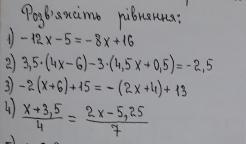 Розв'яжіть рівняння:
1) -12x-5=-8x+16
2) 3,5·(4x-6)-3·(4,5x+0,5)=-2,5
3) -2(x+6)+15=-(2x+4)+13
4) x+3,5/4 = 2x-5,25/7